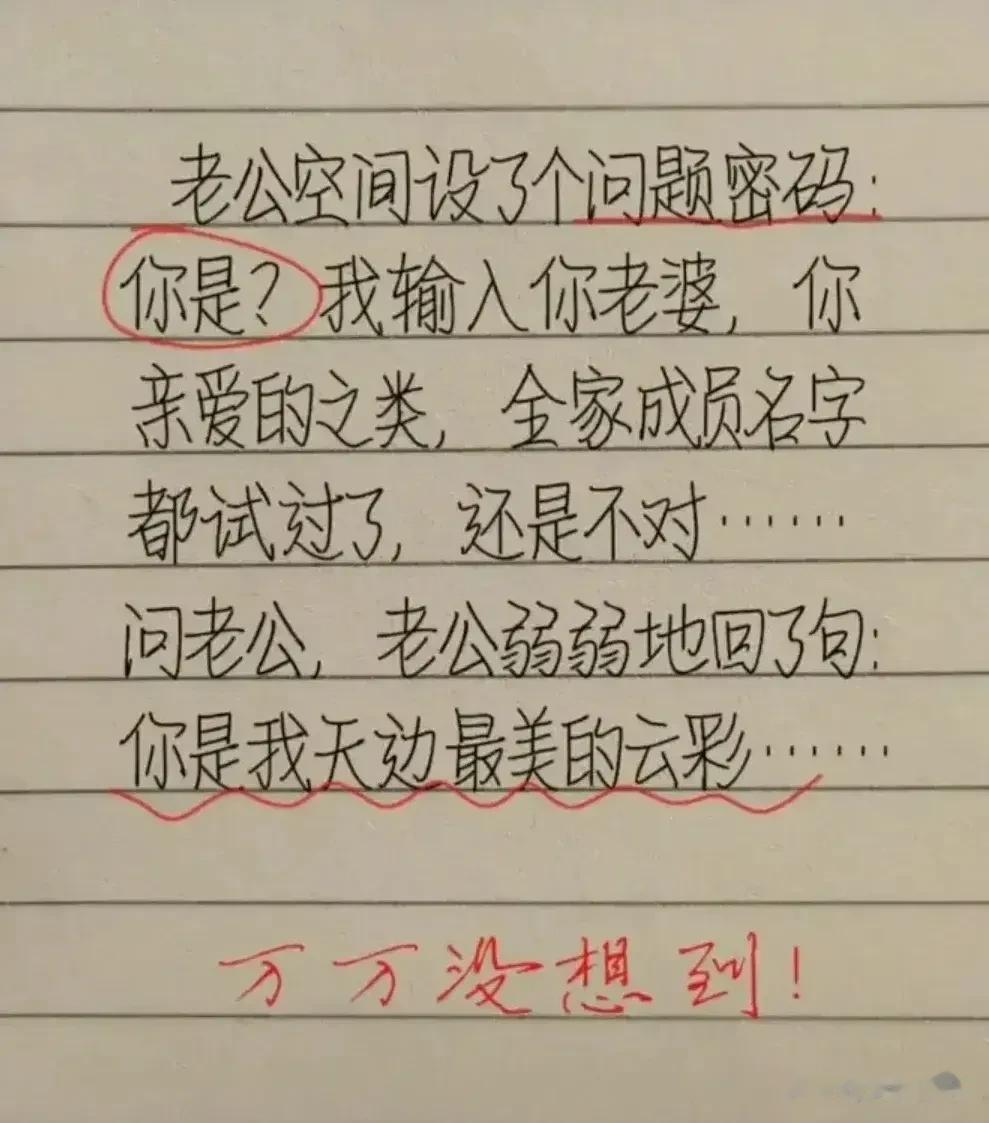 老公空间设了个问题密码：
你是？我输入你老婆，你
亲爱的之类，全家成员名字
都试过了，还是不对……
问老公，老公弱弱地回了句：
你是我天边最美的云彩……
万万没想到！